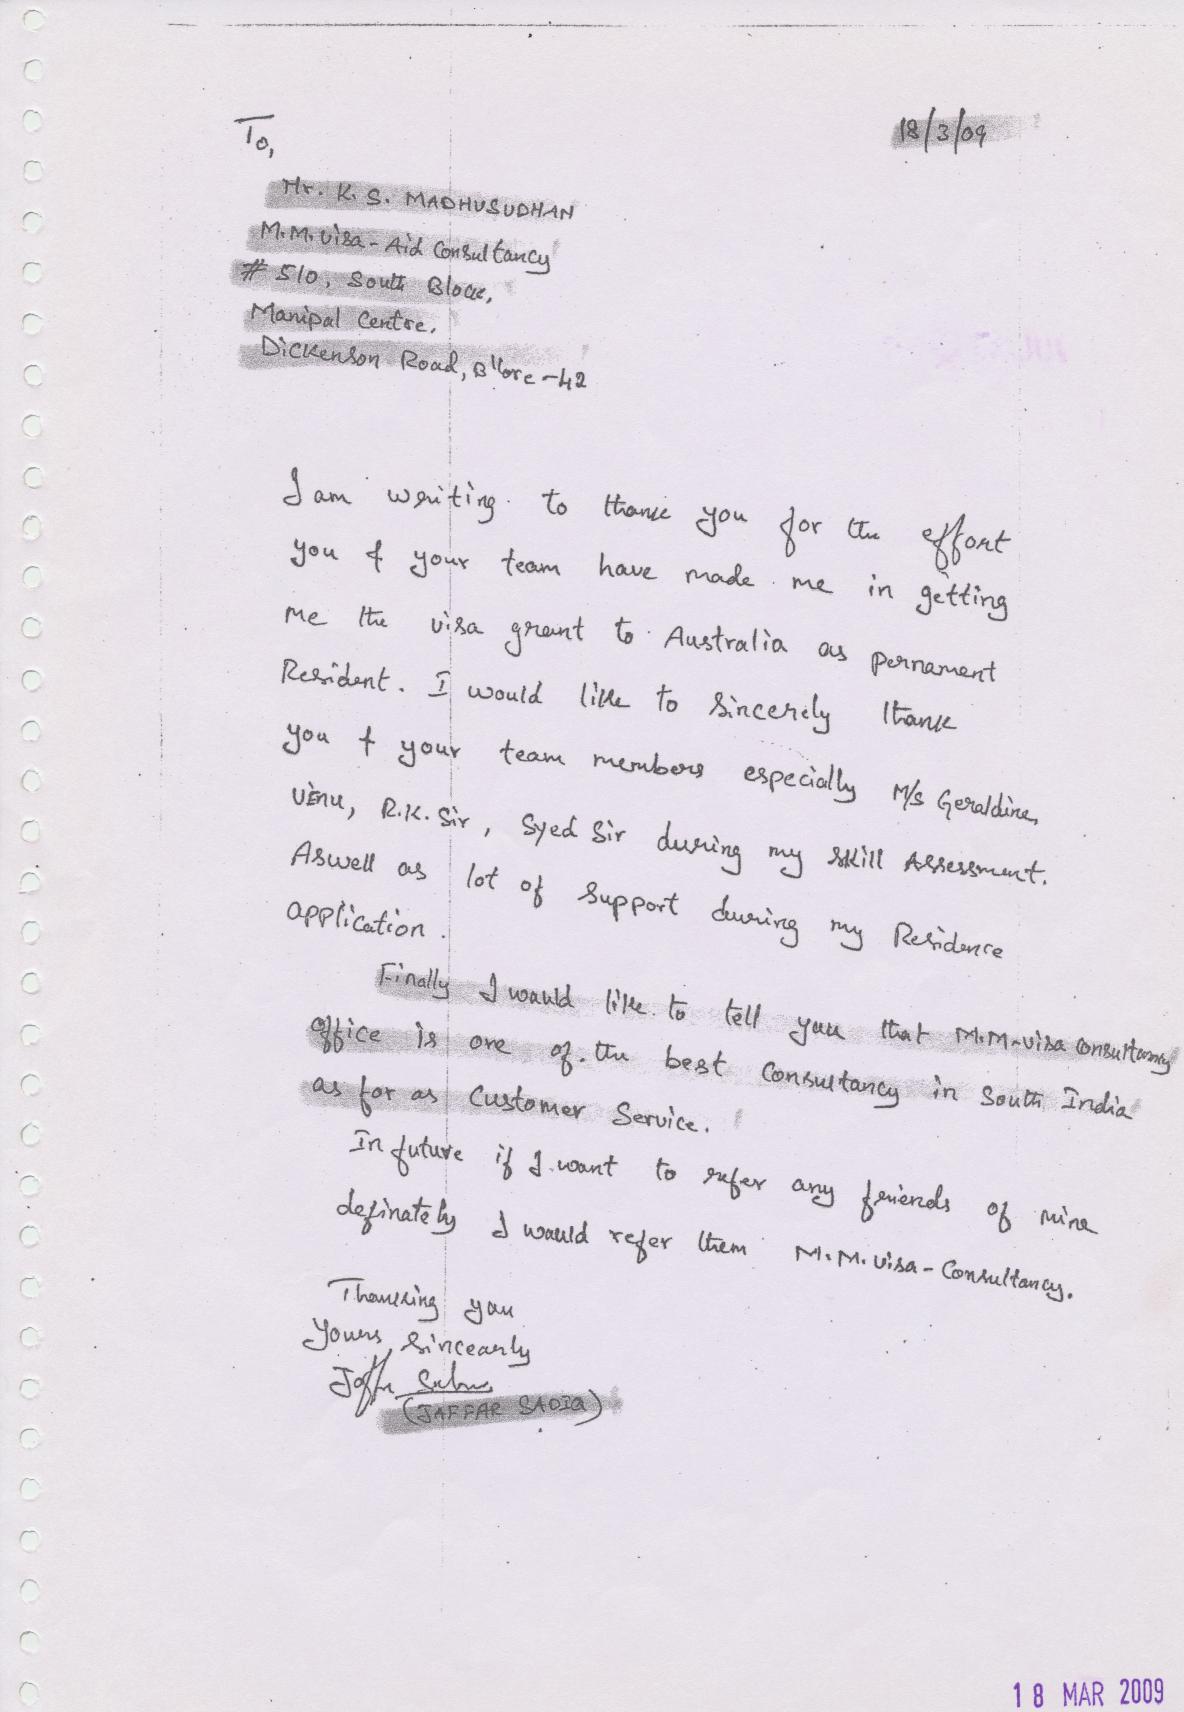 To,
18/3/09
Mr. K. S. MADHUSUDHAN
M.M. Visa - Aid Consultancy
# 510, South Block,
Manipal Centre.
Dickenson Road, B'lore - 42
I am writing to thank you for the effort
you & your team have made me in getting
me the visa grant to Australia as pernament
Resident. I would like to sincerely thank
you & your team members especially M/s Geraldine,
Venu, R.K. Sir, Syed Sir during my skill Assessment.
Aswell as lot of support during my Residence
application.
Finally I would like to tell you that M.M-visa consultancy
office is one of the best Consultancy in South India
as for as Customer Service.
In future if I want to refer any friends of mine
definately I would refer them M.M. visa - Consultancy.
Thanking you
Yours sincearly
(JAFFAR SADIQ)
18 MAR 2009